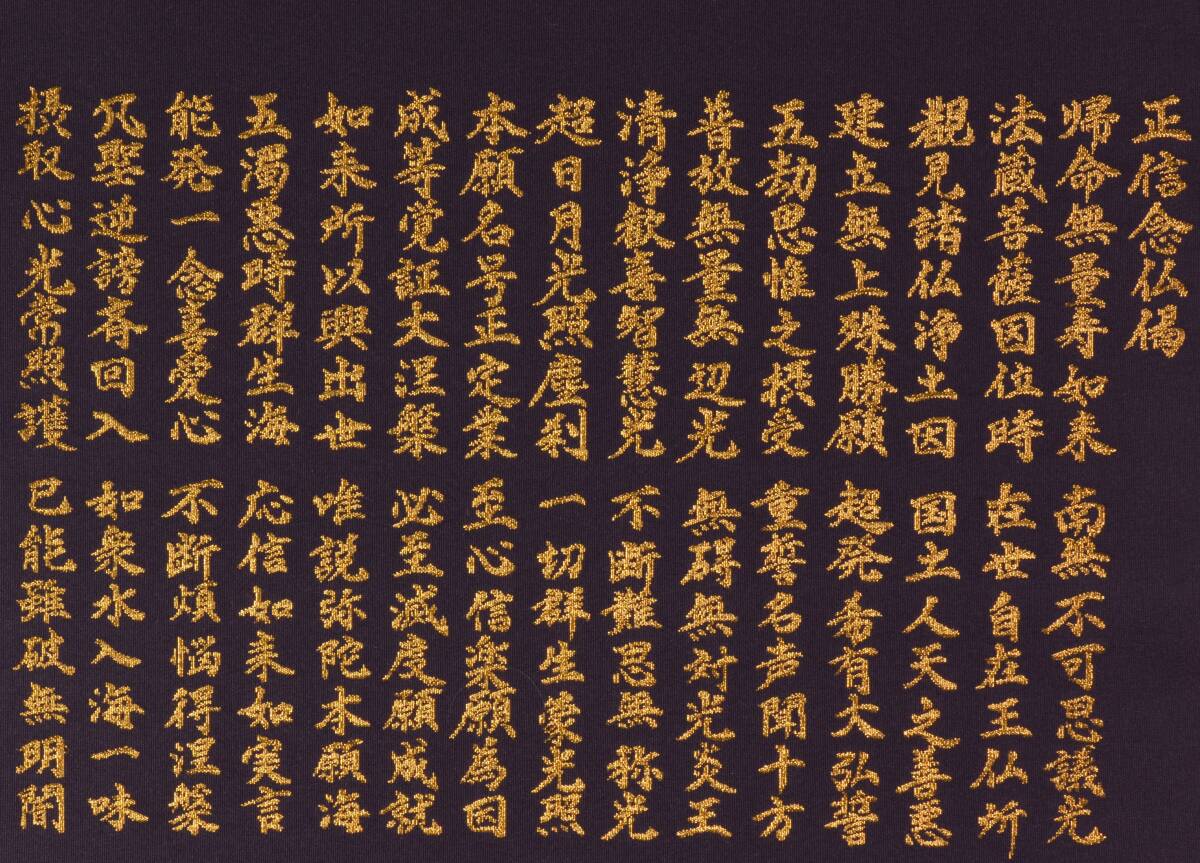 正信念仏偈
帰命無量寿如来 南無不可思議光
法蔵菩薩因位時 在世自在王仏所
観見諸仏浄土因 国土人天之善悪
建立無上殊勝願 超発希有大弘誓
五劫思惟之摂受 重誓名声聞十方
普放無量無辺光 無碍無対光炎王
清浄歓喜智慧光 不断難思無称光
超日月光照塵刹 一切群生蒙光照
本願名号正定業 至心信楽願為因
成等覚証大涅槃 必至滅度願成就
如来所以興出世 唯説弥陀本願海
五濁悪時群生海 応信如来如実言
能発一念喜愛心 不断煩悩得涅槃
凡聖逆謗斉回入 如衆水入海一味
摂取心光常照護 已能雖破無明闇